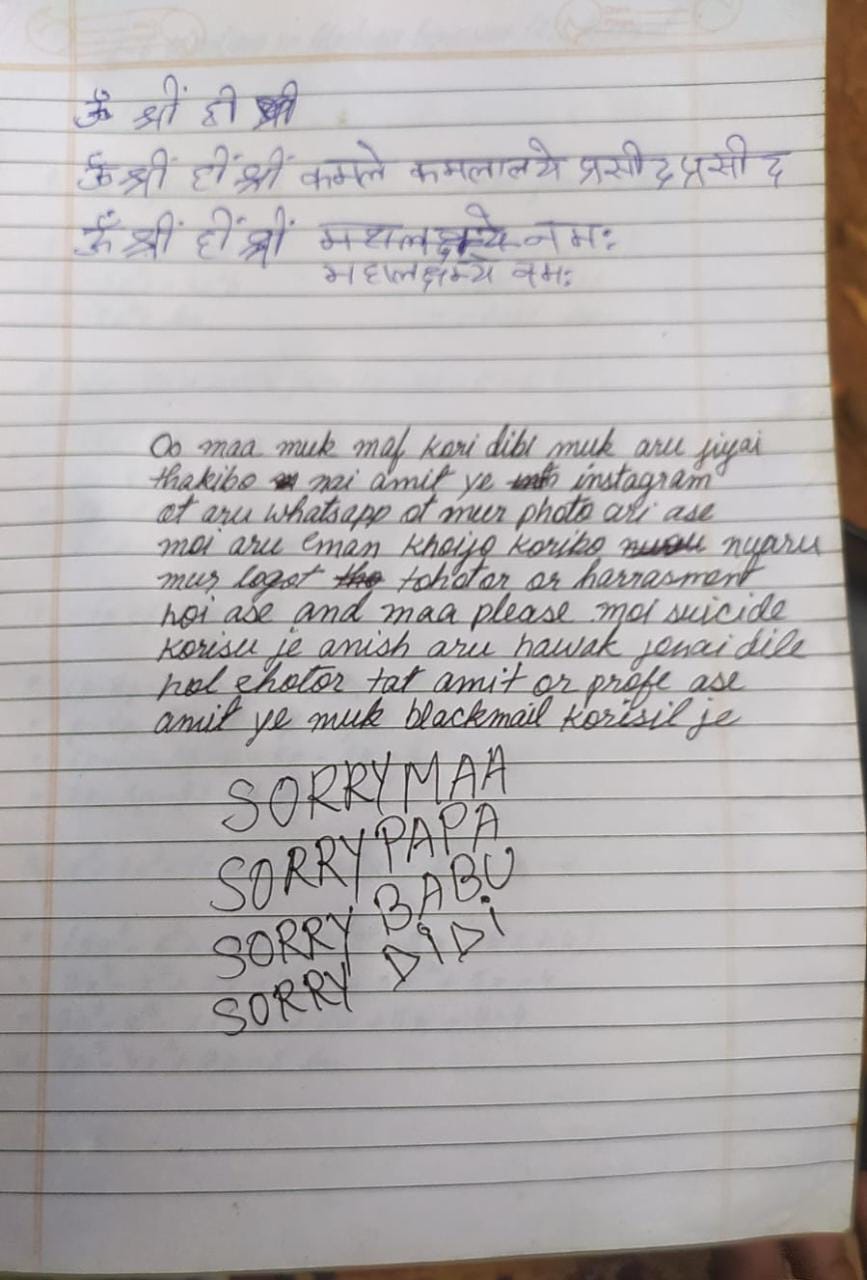 ॐ श्रीं ही श्री
ॐ श्रीं हीं श्रीं कमले कमलालये प्रसीद प्रसीद
ॐ श्रीं हीं श्रीं नमः
महालक्षम्ये नमः
Oo maa muk maf kori dibi muk aru jiyai
thakibo nai amit ye instagram
ot aru whatsapp ot mur photo ari ase
moi aru eman khoijo koribo nuaru
mur logot tohotor or harrasment
hoi ase and maa please moi suicide
korisu je anish aru nawak jonai dile
hol ehotor tat amit or profe ase
amit ye muk blackmail korisil je
SORRY MAA
SORRY PAPA
SORRY BABU
SORRY DiDi